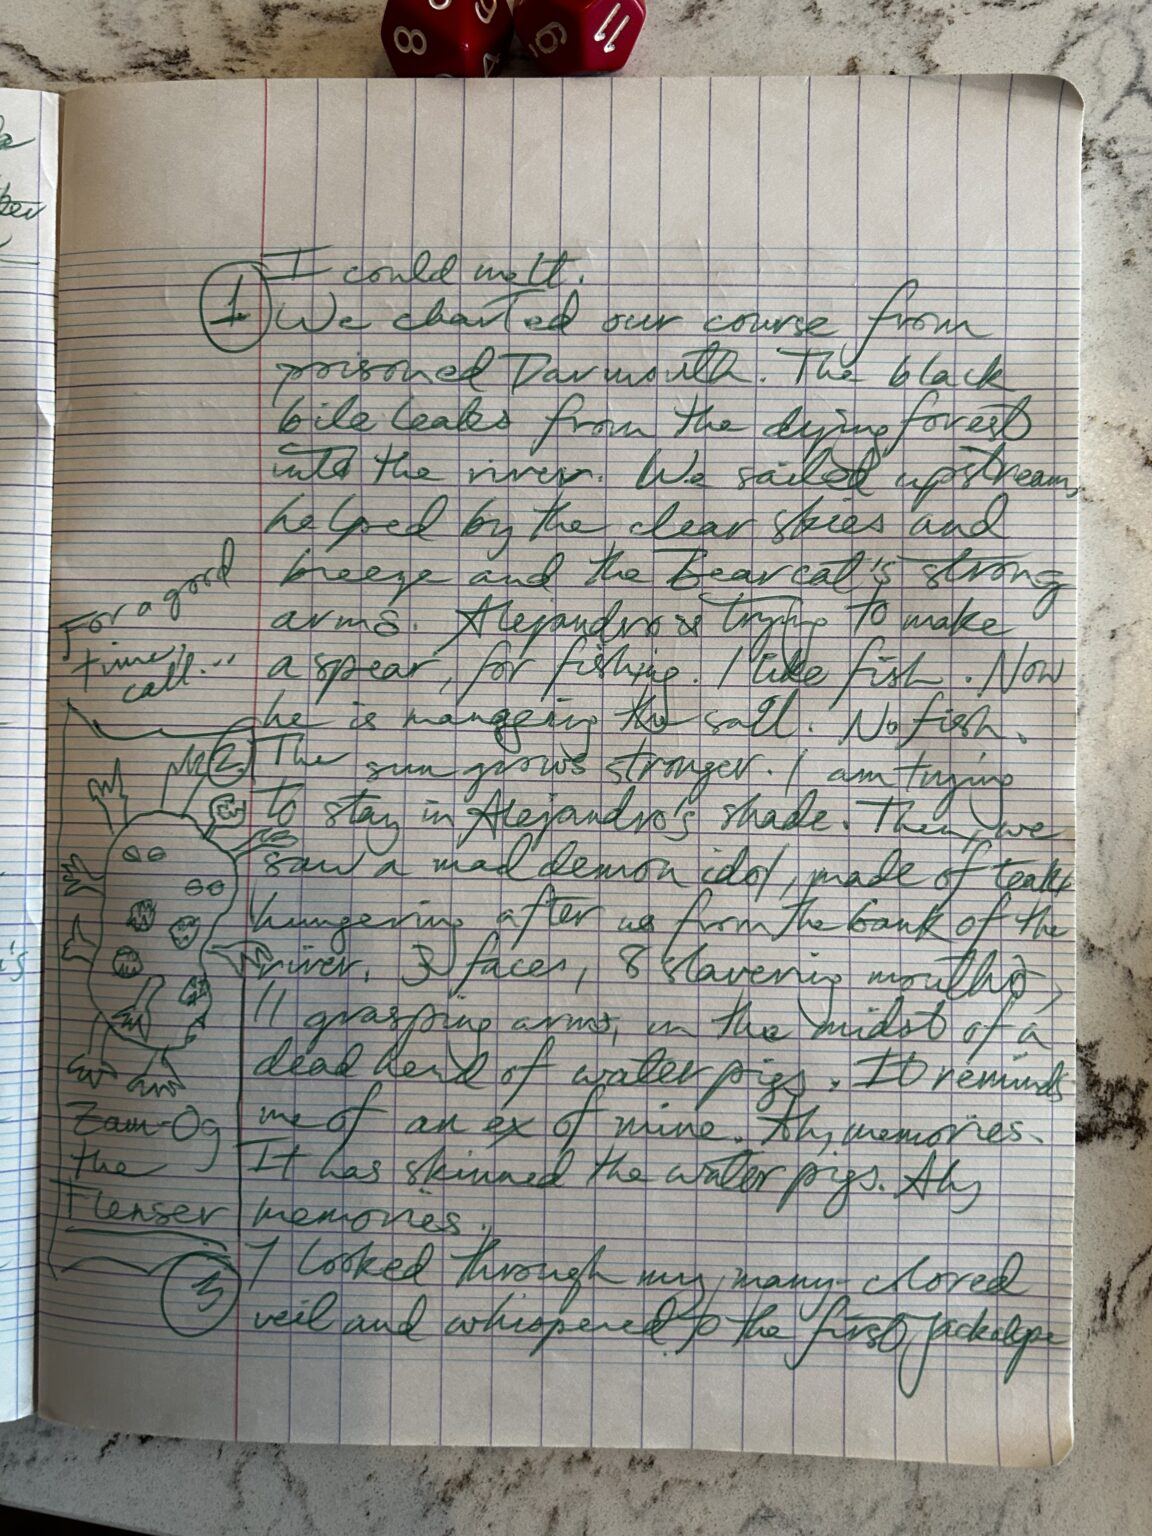 8
11
9
I could melt.
1 We charted our course from
poisoned Darmouth. The black
bile leaks from the dying forest
into the river. We sailed upstream,
helped by the clear skies and
breeze and the Bearcat's strong
arms. Alejandro is trying to make
a spear, for fishing. I like fish. Now
he is manging the sail. No fish.
2 The sun grows stronger. I am trying
to stay in Alejandro's shade. Then, we
saw a mad demon idol, made of teak
hungering after us from the bank of the
river. 3 faces, 8 slavering mouths,
11 grasping arms, in the midst of a
dead herd of water pigs. It reminds
me of an ex of mine. Ah, memories.
It has skinned the water pigs. Ah,
memories.
3 I looked through my many-clored
veil and whispered to the first jackalope
For a good
time,
call...
Zam-Og
the
Flenser